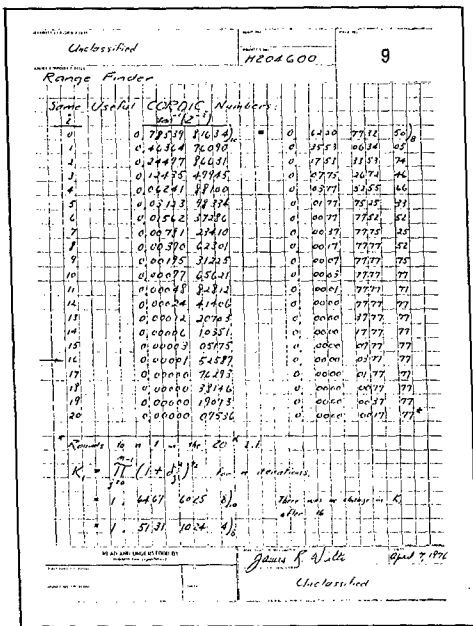 Unclassified
H204600
9
Range Finder
Some Useful CORDIC Numbers:
i tan⁻¹(2⁻ⁱ)
0 0.78539 81634)₁₀ = 0. 6220 7732 50)₈
1 0.46364 76090 0. 3553 0634 05
2 0.24497 86631 0. 1753 3353 74
3 0.12435 49945 0. 0775 2672 46
4 0.06241 88100 0. 0377 5255 66
5 0.03123 98334 0. 0177 7525 33
6 0.01562 37286 0. 0077 7752 52
7 0.00781 23410 0. 0037 7775 25
8 0.00390 62301 0. 0017 7777 52
9 0.00195 31225 0. 0007 7777 75
10 0.00097 65621 0. 0003 7777 77
11 0.00048 82812 0. 0001 7777 77
12 0.00024 41406 0. 0000 7777 77
13 0.00012 20703 0. 0000 3777 77
14 0.00006 10351 0. 0000 1777 77
15 0.00003 05175 0. 0000 0777 77
16 0.00001 52587 0. 0000 0377 77
17 0.00000 76293 0. 0000 0177 77
18 0.00000 38146 0. 0000 0077 77
19 0.00000 19073 0. 0000 0037 77
20 0.00000 09536 0. 0000 0017 77*
* Rounds to a 1 in the 20
K₁ = for n iterations.
= 1. 6467 6025 8)₁₀ There was no change in K₁
after 16
= 1. 5131 1024 4)₈
READ AND UNDERSTOOD BY
James R. April 7, 1976
Unclassified